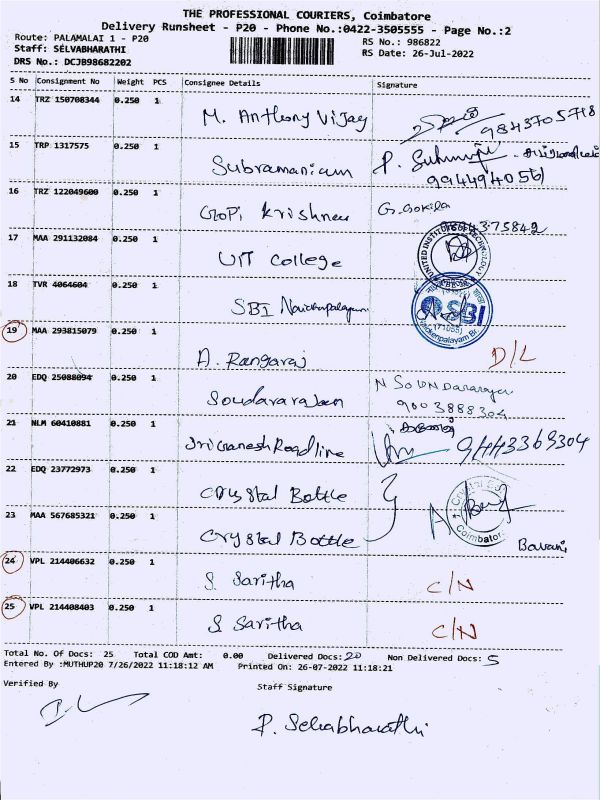 THE PROFESSIONAL COURIERS, Coimbatore
Delivery Runsheet - P20 - Phone No.:0422-3505555 - Page No.:2
Route: PALAMALAI 1 - P20
RS No.: 986822
Staff: SELVABHARATHI
RS Date: 26-Jul-2022
DRS No.: DCJB98682202
S No Consignment No Weight PCS Consignee Details Signature
14 TRZ 150708344 0.250 1 M. Anthony Vijay 9843705718
15 TRP 1317575 0.250 1 Subramanium P.
9944940561
16 TRZ 122049600 0.250 1 Gopi Krishnan G. Gokila
375842
17 MAA 291132084 0.250 1 UIT College UNITED INSTITUTE OF TECHNOLOGY
18 TVR 4064604 0.250 1 SBI Naickenpalayam SBI
(71055)
Naickenpalayam Br.
19 MAA 293815079 0.250 1 A. Rangaraj D/L
20 EDQ 25088094 0.250 1 Soudararajan N
9003888304
21 NLM 60410881 0.250 1 Sri Ganesh Readline 9443369304
22 EDQ 23772973 0.250 1 Crystal Bottle
23 MAA 567685321 0.250 1 Crystal Bottle Coimbator Bavani
24 VPL 214406632 0.250 1 S. Saritha C/N
25 VPL 214408403 0.250 1 S. Saritha C/N
Total No. Of Docs: 25 Total COD Amt: 0.00 Delivered Docs: 20 Non Delivered Docs: 5
Entered By :MUTHUP20 7/26/2022 11:18:12 AM Printed On: 26-07-2022 11:18:21
Verified By
Staff Signature
P. Selvabharathi